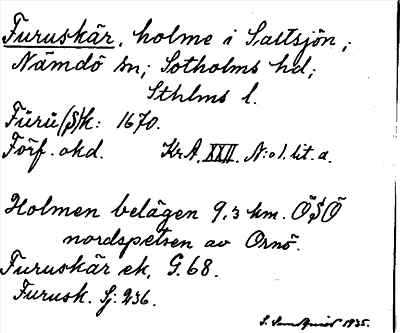 Furuskär, holme i Saltsjön;
Nämdö sn; Sotholms hd;
Sthlms l.
Furu(s)k: 1670.
Förf. okd. KrA. XXII. N:o 1. lit. a.
Holmen belägen 9,3 km. ÖSÖ
nordspetsen av Ornö.
Furuskär ek. G.68.
Furusk. Sj: 236.
1935.